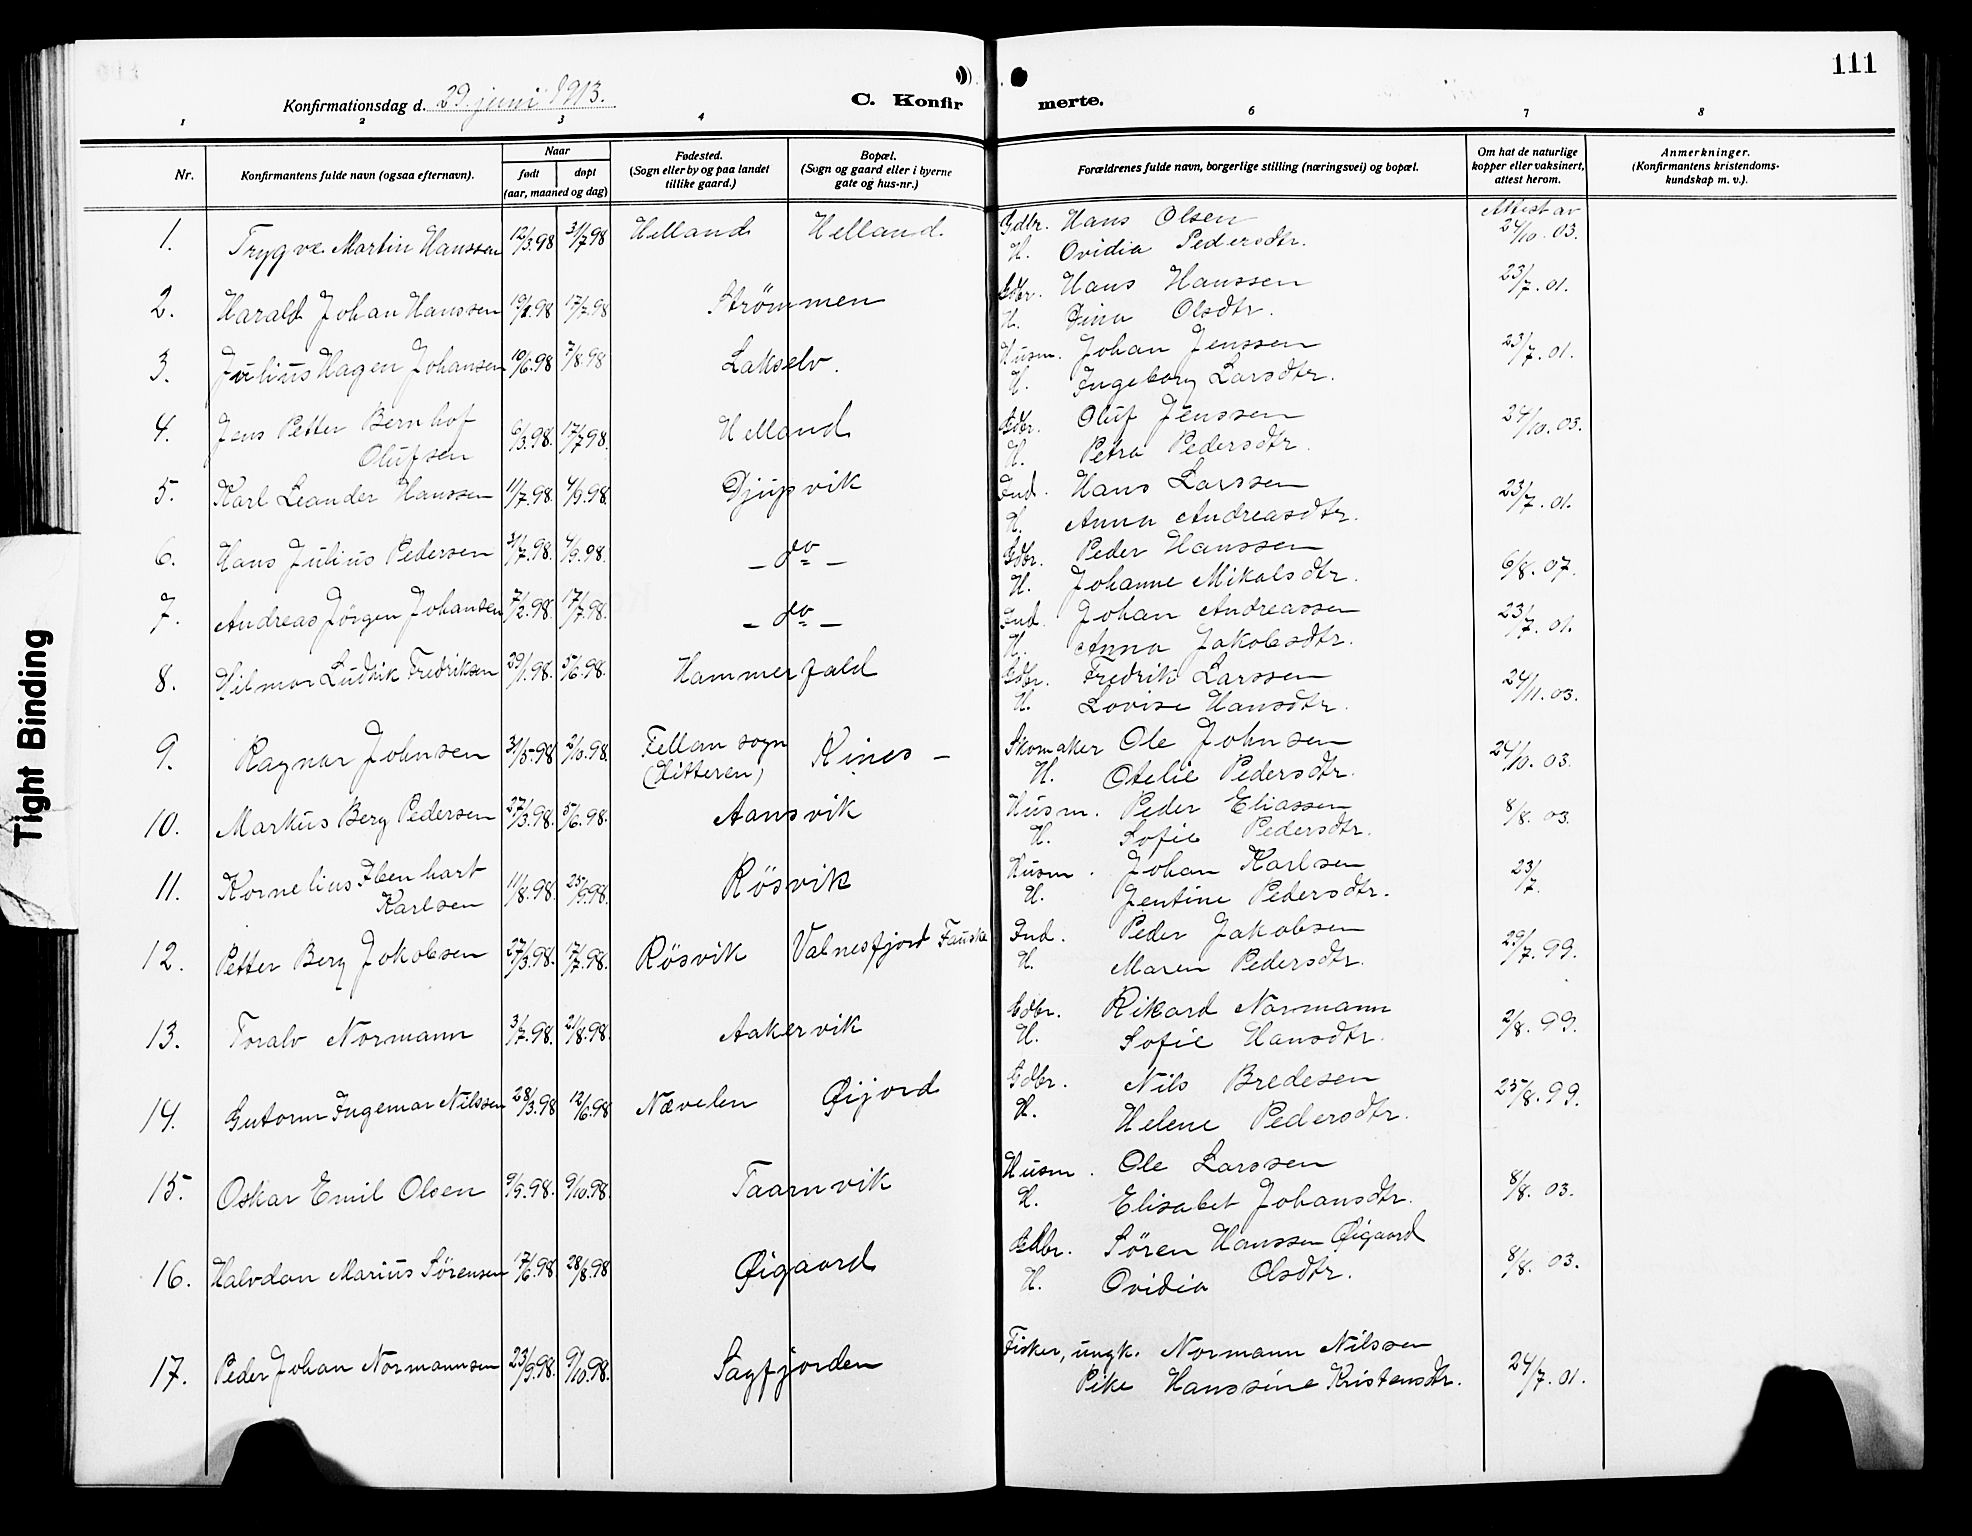 111
Konfirmationsdag d. 29. juni 1913.
C. Konfirmerte.
1 2 3 4 6 7 8
Nr. Konfirmantens fulde navn (ogsaa efternavn). Naar født døpt (aar, maaned og dag) Fødested. (Sogn eller by og paa landet tillike gaard.) Bopæl. (Sogn og gaard eller i byerne gate og hus-nr.) Forældrenes fulde navn, borgerlige stilling (næringsvei) og bopæl. Om hat de naturlige kopper eller vaksinert, attest herom. Anmerkninger. (Konfirmantens kristendoms-kundskap m. v.).
1. Trygve Martin Hanssen 12/3.98 31/7.98 Helland Helland. Gdbr. Hans Olsen Attest av 24/10.03.
H. Ovidia Pedersdtr.
2. Harald Johan Hanssen 17/7.98 Strömmen Gdbr. Hans Hanssen 23/7.01.
H. Dina Olsdtr.
3. Julius Hagen Johansen 10/6.98 7/8.98 Lakselv. Husm. Johan Jenssen 23/7.01.
H. Ingeborg Larsdtr.
4. Jens Petter Bernhof Olufsen 6/3.98. 17/7.98. Helland Gdbr. Oluf Jenssen 24/10.03.
H. Petra Pedersdtr.
5. Karl Leander Hanssen 11/7.98. 4/9.98. Djupvik Ind. Hans Larssen 23/7.01.
H. Anna Andreasdtr.
6. Hans Julius Pedersen 31/7.98. 4/9.98. - do - Gdbr. Peder Hanssen 6/8.07.
H. Johanne Mikalsdtr.
7. Andreas Jörgen Johansen 7/2.98. 17/7.98. - do - Ind. Johan Andreassen 23/7.01.
H. Anna Jakobsdtr.
8. Hilmar Ludvik Fredriksen 29/1.98. 5/6.98. Hammerfald Gdbr. Fredrik Larssen 24/11.03.
H. Lovise Hansdtr.
9. Ragnar Johnsen 31/5.98 2/10.98. Fellan sogn (Hitteren) Kines - Skomaker Ole Johnsen 24/10.03.
H. Otelie Pedersdtr.
10. Markus Berg Pedersen 27/3.98. 5/6.98. Aansvik Husm. Peder Eliassen 8/8.03.
H. Sofie Pedersdtr.
11. Kornelius Ibenhart Karlsen 11/8.98. 25/9.98. Rösvik Husm. Johan Karlsen 23/7.
H. Jentine Pedersdtr.
12. Petter Berg Jakobsen 27/3.98. 17/7.98. Rösvik Valnesfjord Fauske Ind. Peder Jakobsen 29/7.99.
H. Maren Pedersdtr.
13. Toralv Normann 3/7.98. 21/8.98. Aakervik Gdbr. Rikard Normann 2/8.99.
H. Sofie Hansdtr.
14. Gutorm Ingemar Nilssen 28/3.98 12/6.98 Nævelen Øijord Gdbr. Nils Bredesen 25/8.99.
H. Helene Pedersdtr.
15. Oskar Emil Olsen 9/5.98. 9/10.98. Taarnvik Husm. Ole Larssen 8/8.03.
H. Elisabet Johansdtr.
16. Halvdan Marius Sörensen 17/6.98 28/8.98 Øigaard Gdbr. Sören Hanssen Øigaard 8/8.03.
H. Ovidia Olsdtr.
17. Peder Johan Normannsen 23/9.98. 9/10.98. Sagfjorden Fisker, ungk. Normann Nilssen 24/7.01.
Pike Hanssine Kristensdtr.
Tight Binding